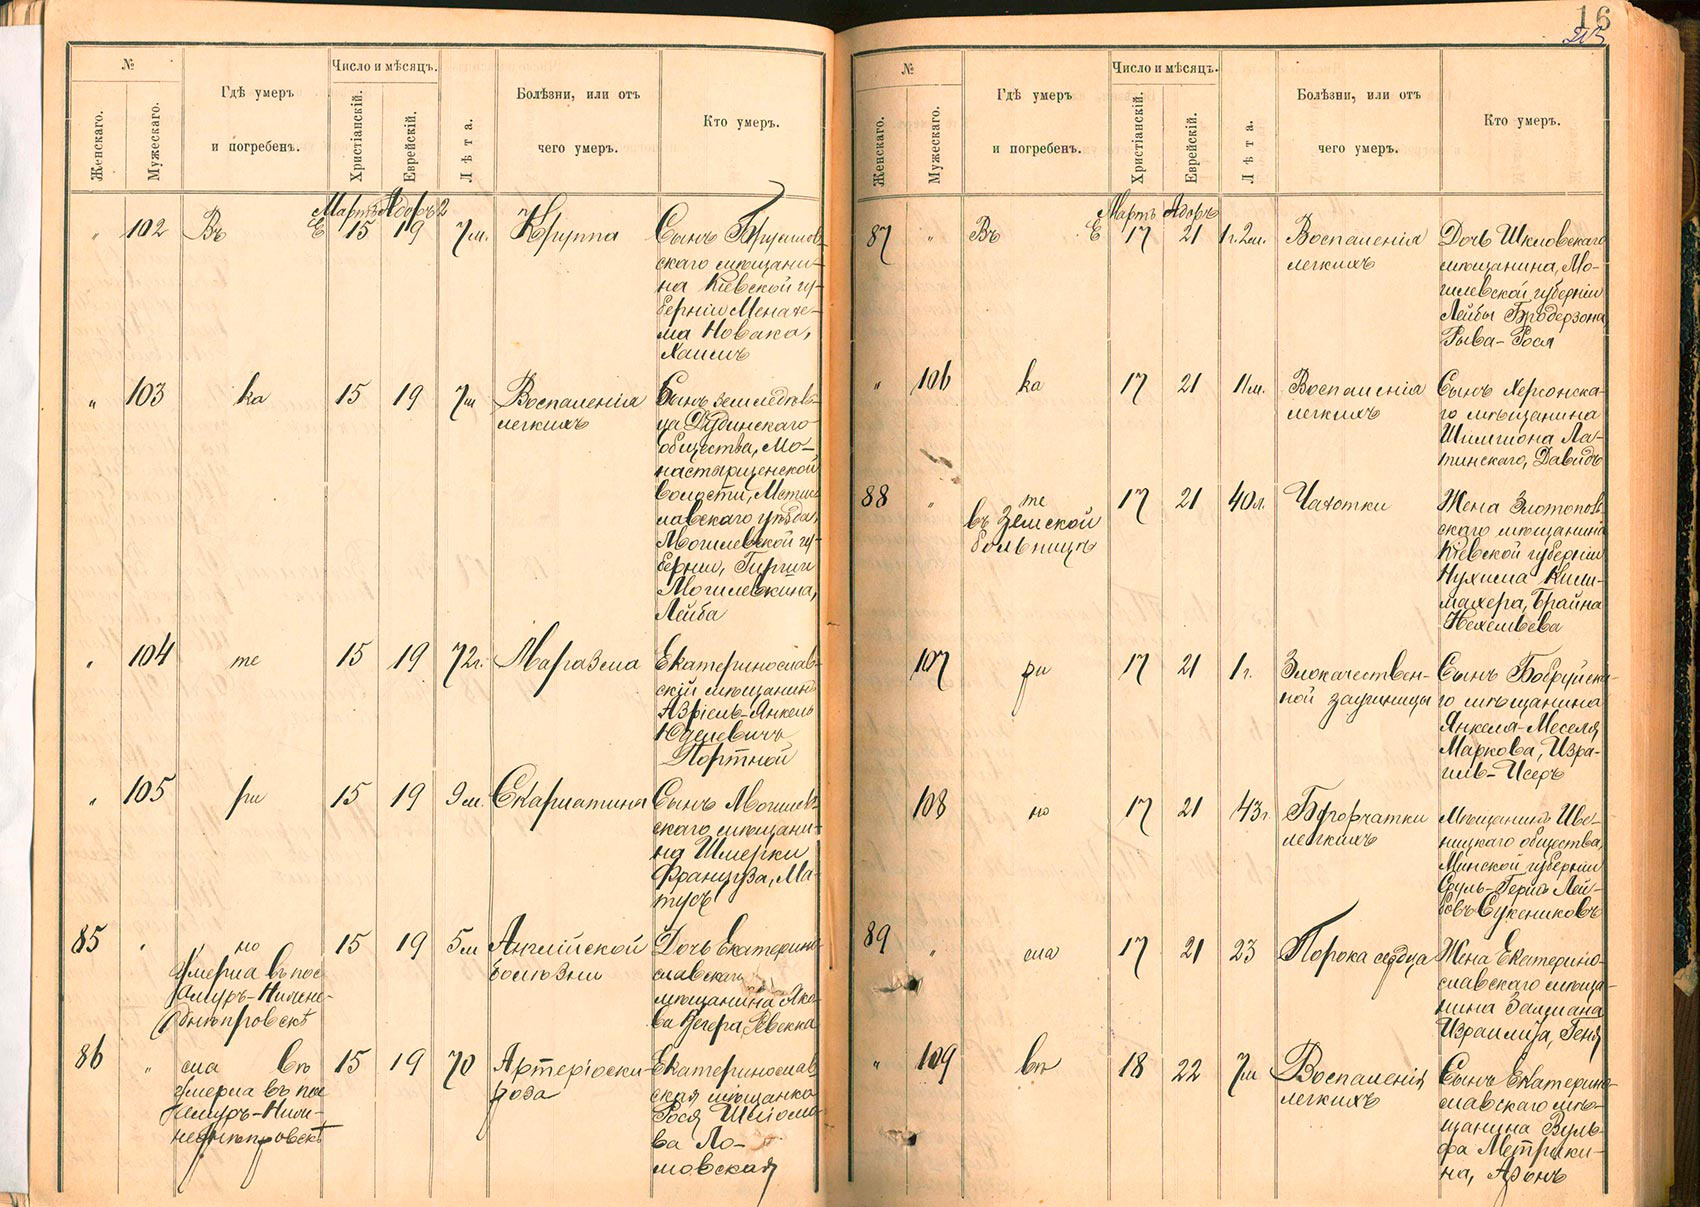 №
Женскаго.
Мужескаго.
Гдѣ умеръ
и погребенъ.
Число и мѣсяцъ.
Христіанскій.
Еврейскій.
Лѣта.
Болѣзни, или отъ
чего умеръ.
Кто умеръ.
Мартъ Адоръ 2
" 102 Въ Е 15 19 7 м. Круппа
Сынъ
скаго мѣщани-
на Кіевской гу-
берніи Менахе-
ма Новака,
Хаимъ
" 103 ка 15 19 7 м Воспаленія
легкихъ
Сынъ земледѣль-
ца Дудинскаго
общества, Мо-
настырщенской
волости, Мстис-
лавскаго уѣзда,
Могилевской гу-
берніи,
Могилевкина,
Лейба
" 104 те 15 19 72 г. Маразма
Екатеринослав-
скій мѣщанинъ
Азріель-Янкель
Юделевичъ
Портной
" 105 ри 15 19 9 м. Скарлатина
Сынъ Могилев-
скаго мѣщани-
на Шмерки
Француза, Ма-
тусъ
85 " но 15 19 5 м Англійской
болѣзни
Умерла въ пос
Амуръ-Нижне-
днѣпровскѣ
Дочь Екатерино-
славскаго
мѣщанина Яко-
ва Ревекка
86 " сла въ 15 19 70 Артеріоскле-
роза
Умерла въ пос
Амуръ-Ниж-
неднѣпровскѣ
Екатеринослав-
ская мѣщанка
Рося Шліомо-
ва Ло-
мовская
16
№
Женскаго.
Мужескаго.
Гдѣ умеръ
и погребенъ.
Число и мѣсяцъ.
Христіанскій.
Еврейскій.
Лѣта.
Болѣзни, или отъ
чего умеръ.
Кто умеръ.
Мартъ Адоръ
87 " Въ Е 17 21 1 г. 2 м. Воспаленія
легкихъ
Дочь Шкловскаго
мѣщанина, Мо-
гилевской губерніи
Лейбы Бродерзона,
Рыва-Рося
" 106 ка 17 21 11 м. Воспаленія
легкихъ
Сынъ Херсонска-
го мѣщанина
Шимшона Ла-
тинскаго, Давидъ
88 " те 17 21 40 л. Чахотки
въ Земской
больницѣ
Жена Златополь-
скаго мѣщанина
Кіевской губерніи
Нухима Кили-
махера, Брайна
Нехемьева
107 ри 17 21 1 г. Злокачествен-
ной задушницы
Сынъ Бобруйска-
го мѣщанина
Янкеля-Меселя
Маркова, Изра-
иль-Исеръ
108 но 17 21 43 г. Бугорчатки
легкихъ
Мѣщанинъ Иве-
ницкаго общества,
Минской губерніи
Сруль-Гершъ Лей-
бовъ Сукениковъ
89 " сла 17 21 23 Порока сердца
Жена Екатерино-
славскаго мѣща-
нина Залмана
Израилита, Геня
" 109 въ 18 22 7 м Воспаленія
легкихъ
Сынъ Екатерино-
славскаго мѣ-
щанина Вуль-
фа Метрики-
на, Аронъ